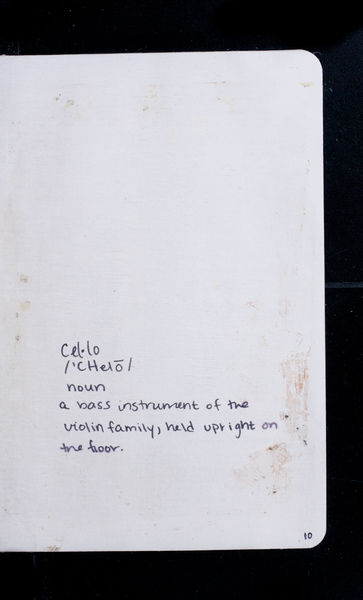 Cel·lo
/'CHelō/
noun
a bass instrument of the
violin family, held upright on
the floor.
10